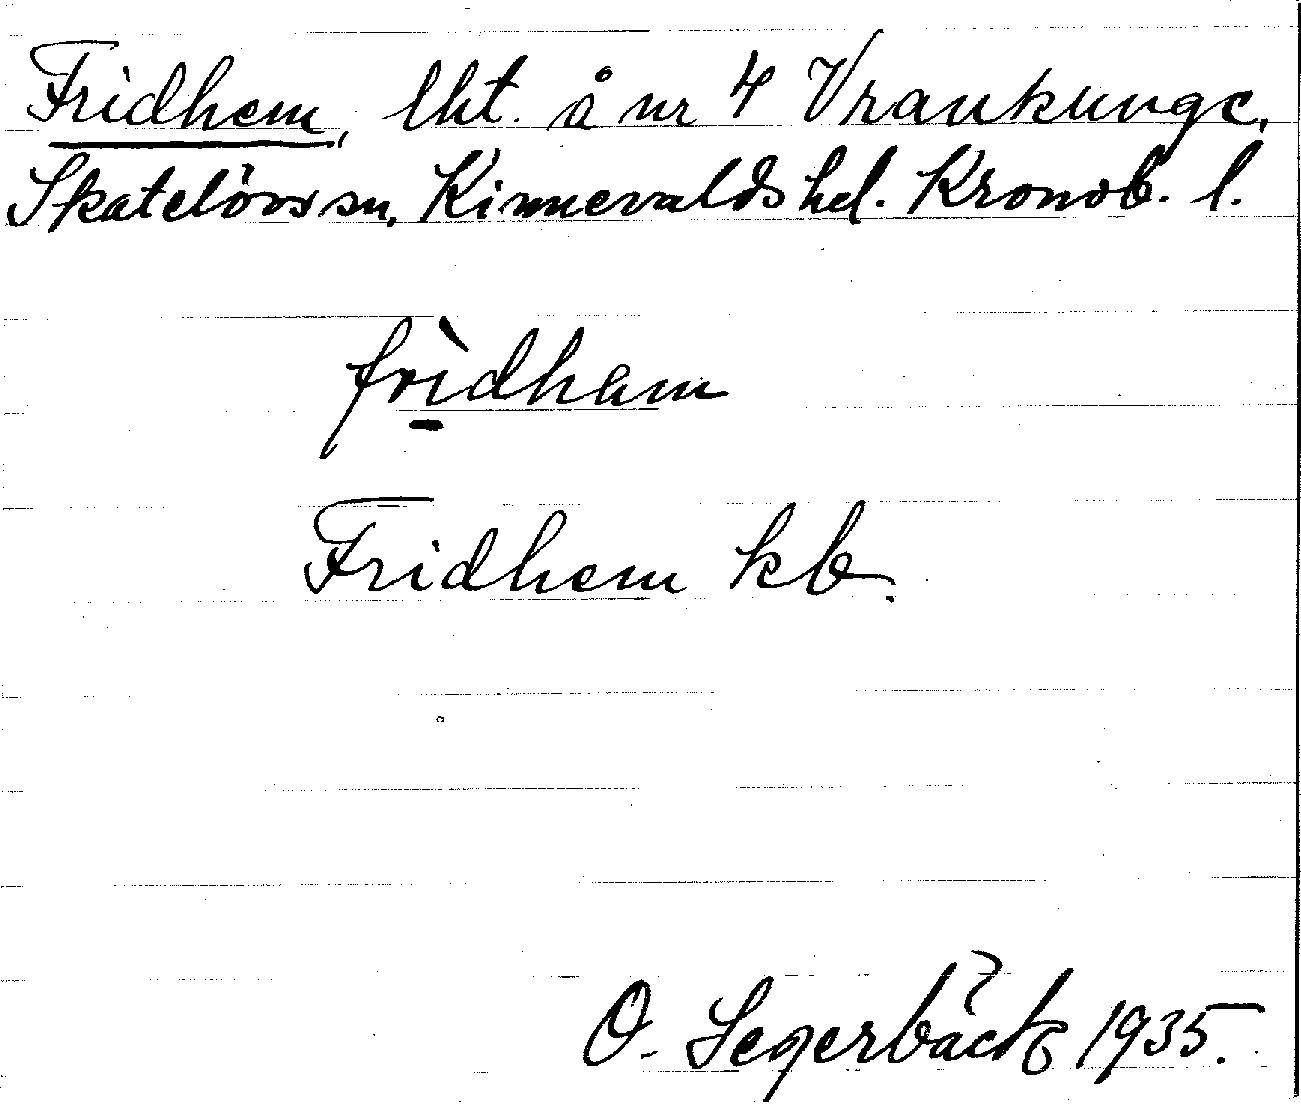 Fridhem, lht. å nr 4 Vrankunge,
Skatelövs sn, Kinnevalds hd. Kronob. l.
frìdham
Fridhem kb.
O. Segerbäck 1935.